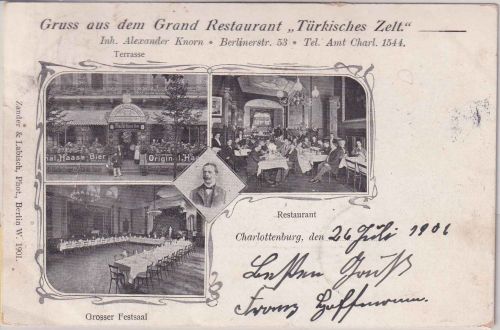 Gruss aus dem Grand Restaurant „Türkisches Zelt.“
Inh. Alexander Knorn • Berlinerstr. 53 • Tel. Amt Charl. 1544.
Terrasse
nal Haase-Bier
Original Haa
Restaurant
Grosser Festsaal
Zander & Labisch, Phot., Berlin W. 1901.
Charlottenburg, den 26 Juli 1901
Besten Gruß
Franz Hoffmann.